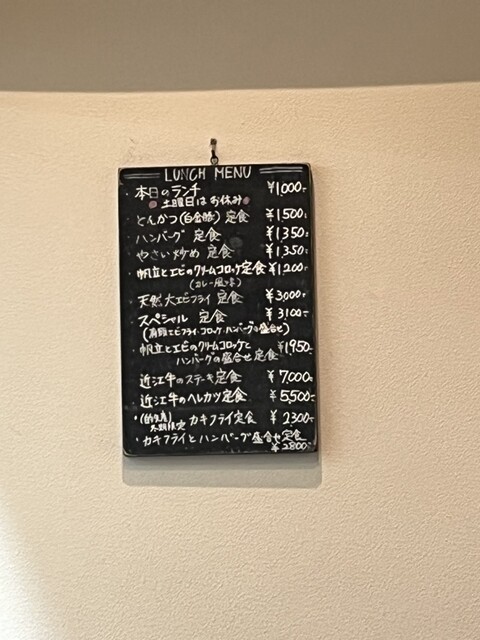 LUNCH MENU
・本日のランチ ¥1,000-
土曜日は お休み
・とんかつ(白金豚) 定食 ¥1,500-
・ハンバーグ 定食 ¥1,350-
・やさい炒め 定食 ¥1,350-
・帆立とエビのクリームコロッケ定食 ¥1,200-
(カレー風味)
・天然大エビフライ 定食 ¥3,000-
・スペシャル 定食 ¥3,100-
(有頭エビフライ・コロッケ・ハンバーグの盛合せ)
・帆立とエビのクリームコロッケと ¥1,950-
ハンバーグの盛合せ 定食
・近江牛のステーキ定食 ¥7,000-
・近江牛のヘレカツ定食 ¥5,500-
・(的矢産) カキフライ定食 ¥2300-
冬期限定
・カキフライとハンバーグ盛合せ定食
¥2800-